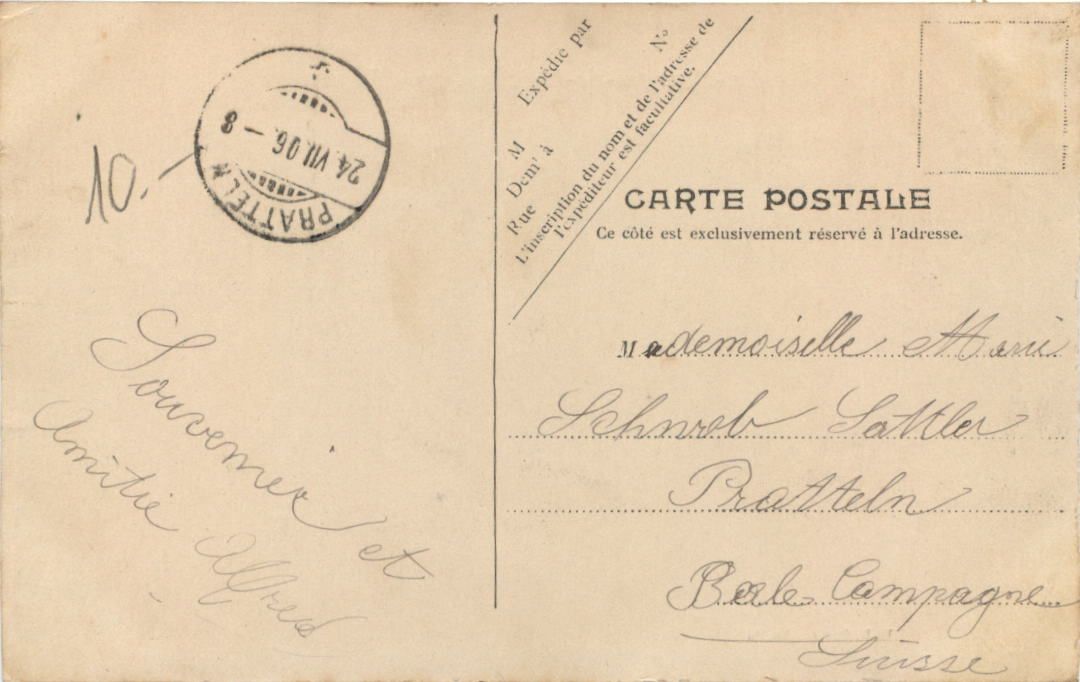 10.-
PRATTELN
24. VII. 06. - 8
Souvenir et
Amitié Alfred
M Expédié par
M
Demt à
Rue N°
L'inscription du nom et de l'adresse de
l'expéditeur est facultative.
CARTE POSTALE
Ce côté est exclusivement réservé à l'adresse.
Mademoiselle Marie
Schwob Sattler
Pratteln
Basle-Campagne
Suisse